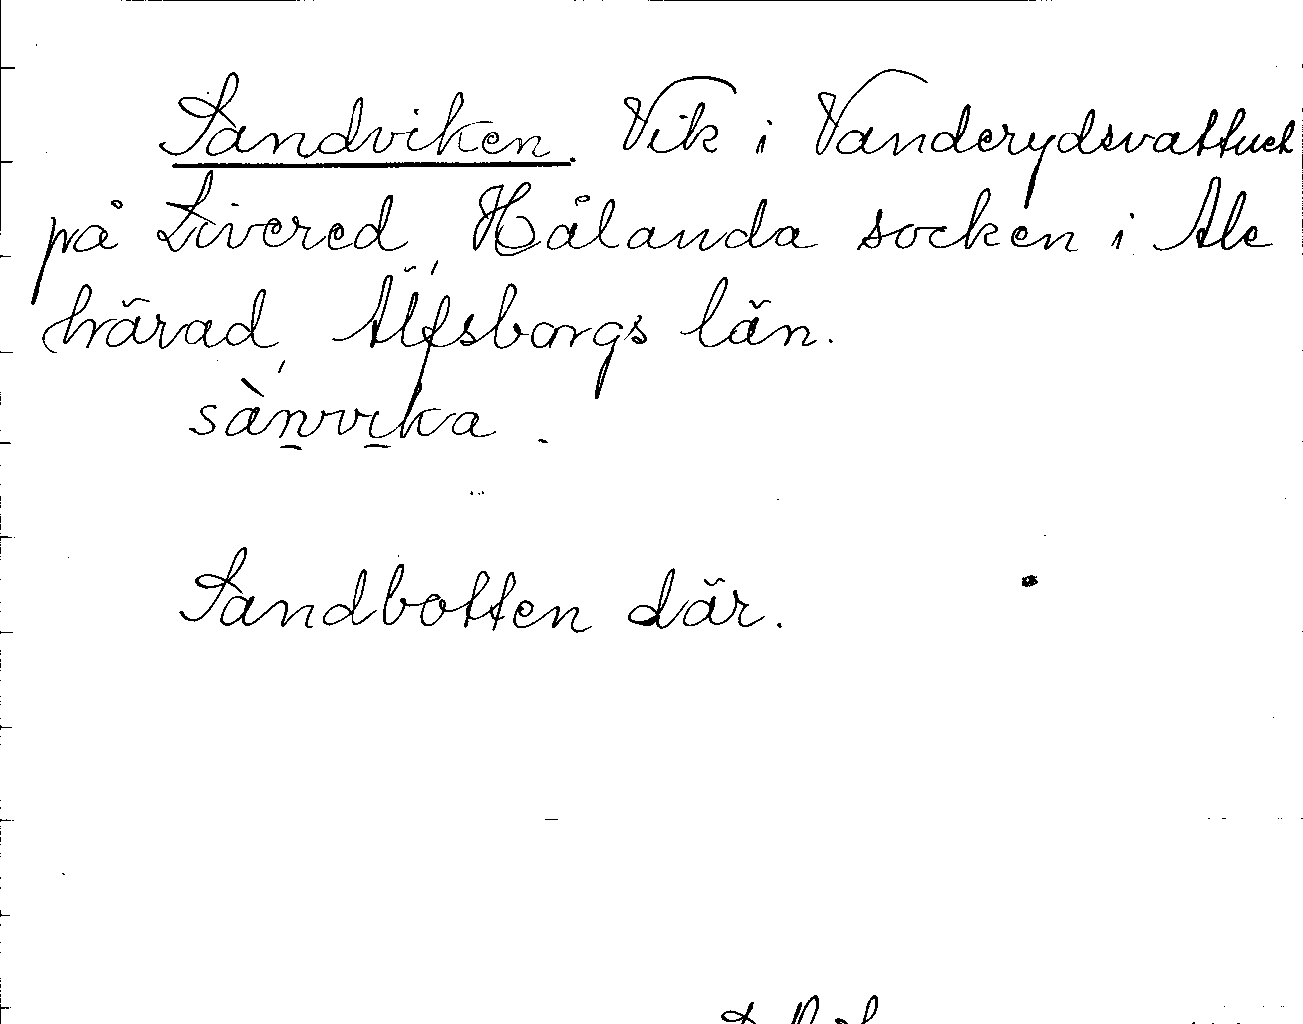 Sandviken. Vik i Vanderydsvattnet
på Livered, Hålanda socken i Ale
härad, Älfsborgs län.
sànvika.
Sandbotten där.